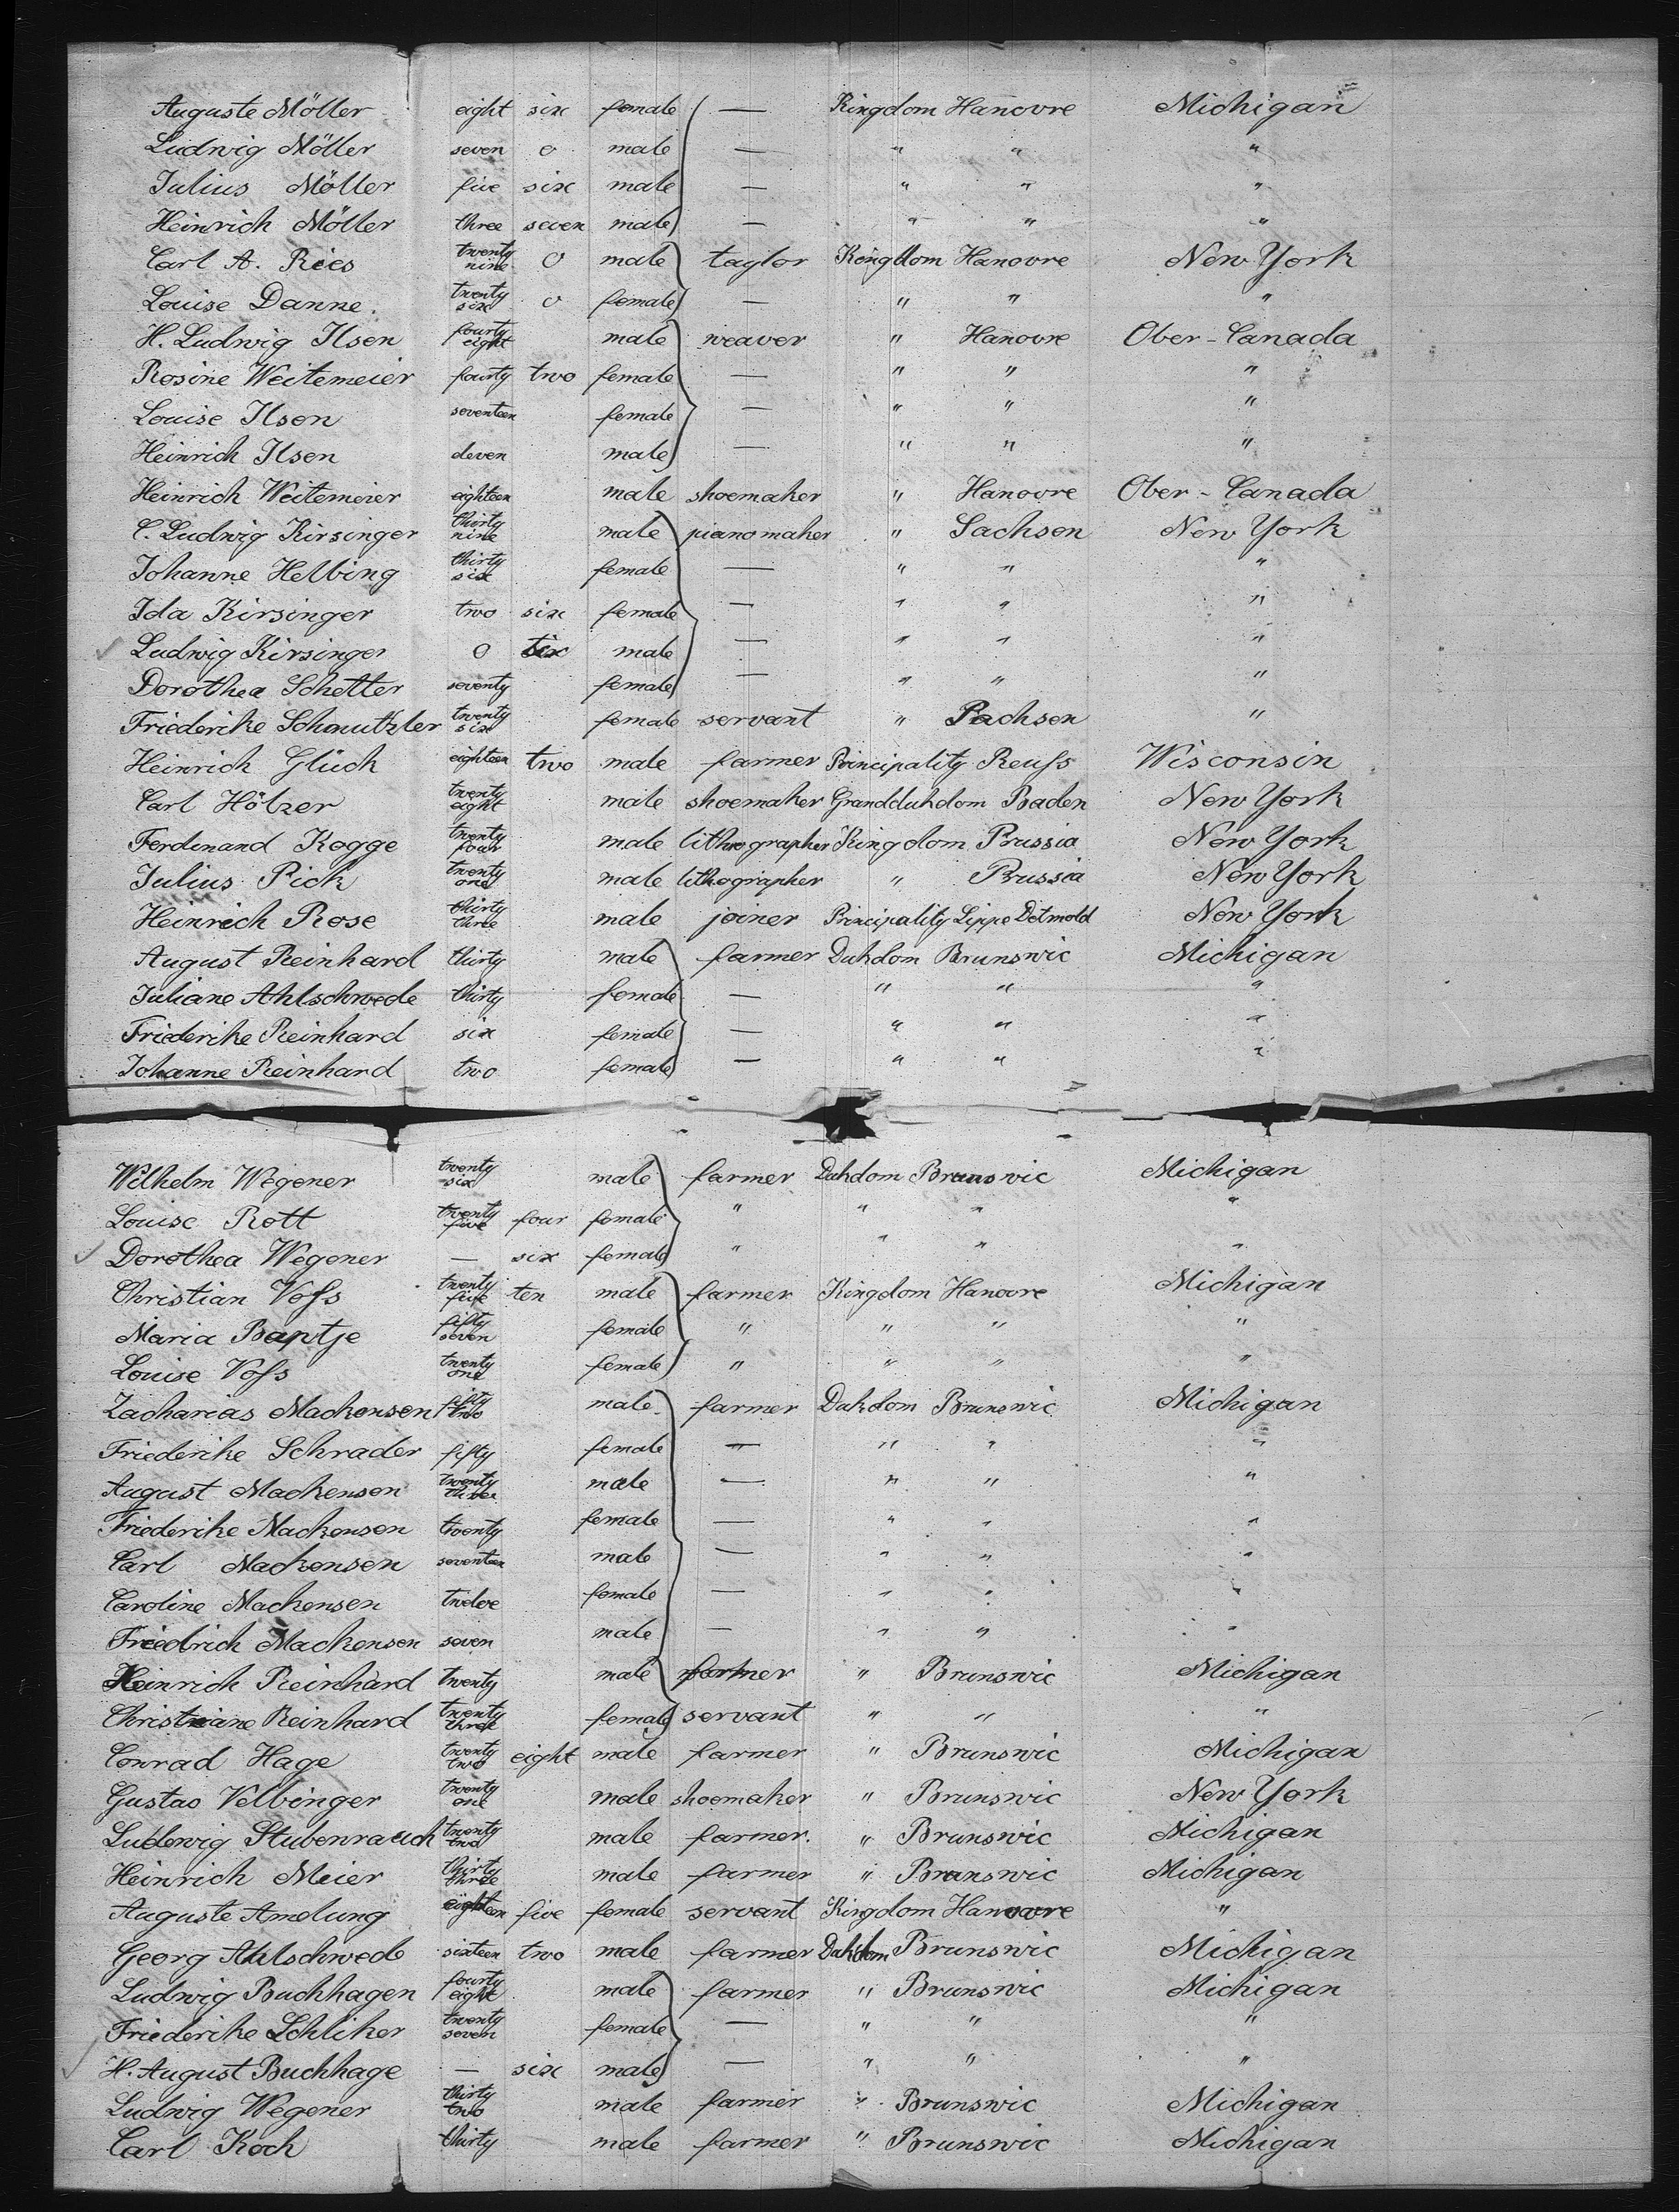 Auguste Möller eight six female — Kingdom Hanovre Michigan
Ludwig Möller seven 0 male — " " "
Julius Möller five six male — " " "
Heinrich Möller three seven male — " " "
Carl A. Ries twenty nine 0 male taylor Kingdom Hanovre New York
Louise Danne. twenty six 0 female — " " "
H. Ludwig Ilsen fourty eight male weaver " Hanovre Ober-Canada
Rosine Weitemeier fourty two female — " " "
Louise Ilsen seventeen female — " " "
Heinrich Ilsen eleven male — " " "
Heinrich Weitemeier eighteen male shoemaker " Hanovre Ober-Canada
C. Ludwig Kirsinger thirty nine male pianomaker " Sachsen New York
Johanne Helbing thirty six female — " " "
Ida Kirsinger two six female — " " "
Ludwig Kirsinger 0 six male — " " "
Dorothea Schetter seventy female — " " "
Friederike Schmutzler twenty six female servant " Sachsen "
Heinrich Glück eighteen two male farmer Principality Reuſs Wisconsin
Carl Hölzer twenty eight male shoemaker Grandduhdom Baden New York
Ferdinand Kogge twenty four male lithographer Kingdom Prussia New York
Julius Pick twenty one male lithographer " Prussia New York
Heinrich Rose thirty three male joiner Principality Lippe Detmold New York
August Reinhard thirty male farmer Duhdom Brunswic Michigan
Juliane Ahlschwede thirty female — " " "
Friederike Reinhard six female — " " "
Johanne Reinhard two female — " " "
Wilhelm Wegener twenty six male farmer Duhdom Brunswic Michigan
Louise Rott twenty five four female " " " "
Dorothea Wegener — six female " " " "
Christian Voſs twenty five ten male farmer Kingdom Hanovre Michigan
Maria Baptje fifty seven female " " " "
Louise Voſs twenty one female " " " "
Zacharias Mackensen fifty two male farmer Duhdom Brunswic Michigan
Friederike Schrader fifty female — " " "
August Mackensen twenty three male — " " "
Friederike Mackensen twenty female — " " "
Carl Mackensen seventeen male — " " "
Caroline Mackensen twelve female — " " "
Friedrich Mackensen seven male — " " "
Heinrich Reinhard twenty male farmer " Brunswic Michigan
Christiane Reinhard twenty three female servant " " "
Conrad Hage twenty two eight male farmer " Brunswic Michigan
Gustav Velbinger twenty one male shoemaker " Brunswic New York
Ludewig Stubenrauch twenty two male farmer. " Brunswic Michigan
Heinrich Meier thirty three male farmer " Brunswic Michigan
Auguste Amelung eighteen five female servant Kingdom Hanovre "
Georg Ahlschwede sixteen two male farmer Duhdom Brunswic Michigan
Ludwig Buchhagen fourty eight male farmer " Brunswic Michigan
Friederike Schliker twenty seven female — " " "
H. August Buchhage — six male — " " "
Ludwig Wegener thirty two male farmer " Brunswic Michigan
Carl Koch thirty male farmer " Brunswic Michigan